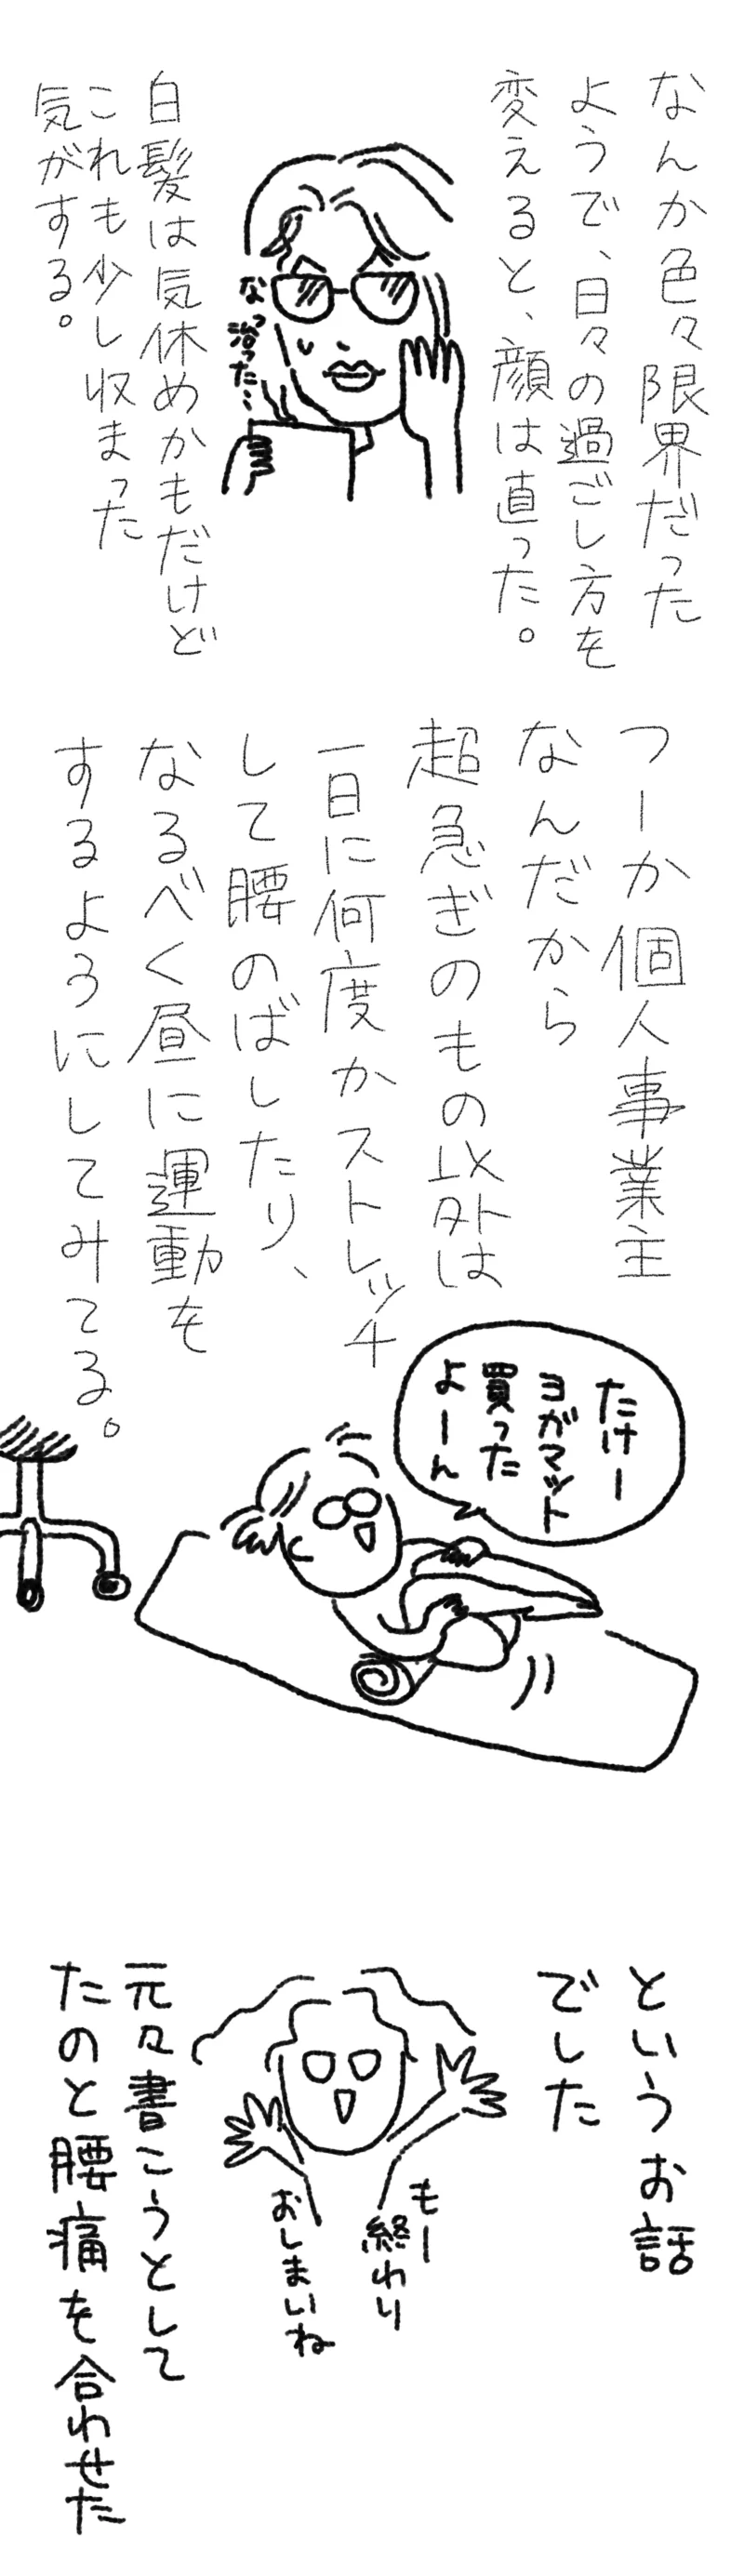 なんか色々限界だった
ようで、日々の過ごし方を
変えると、顔は直った。
なっ
治った…
白髪は気休めかもだけど
これも少し収まった
気がする。
つーか個人事業主
なんだから
超急ぎのもの以外は
一日に何度かストレッチ
して腰のばしたり、
なるべく昼に運動を
するようにしてみてる。
たけー
ヨガマット
買った
よーん
というお話
でした
もー
終わり
おしまいね
元々書こうとして
たのと腰痛を合わせた